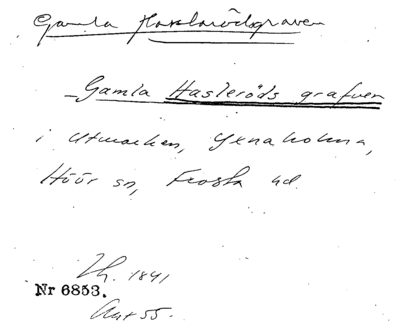 Gamla Haslerödsgraven
Gamla Hasleröds grafven
i Utmarken, Yxnaholma,
Höör sn, Frosta hd
Lh. 1841
Nr 6853.
Akt 55.